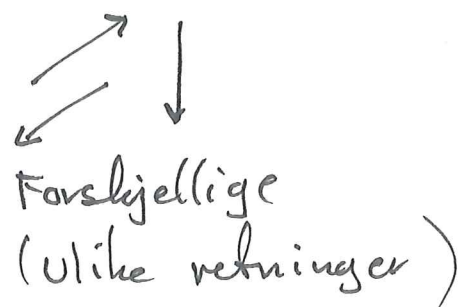 Forskjellige
(Ulike retninger)